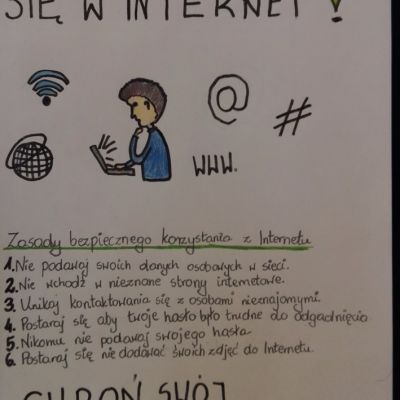 SIĘ W INTERNET!
@
#
WWW.
Zasady bezpiecznego korzystania z Internetu
1. Nie podawaj swoich danych osobowych w sieci.
2. Nie wchodź w nieznane strony internetowe.
3. Unikaj kontaktowania się z osobami nieznajomymi.
4. Postaraj się aby twoje hasło było trudne do odgadnięcia
5. Nikomu nie podawaj swojego hasła
6. Postaraj się nie dodawać swoich zdjęć do Internetu.
CHROŃ SWÓJ